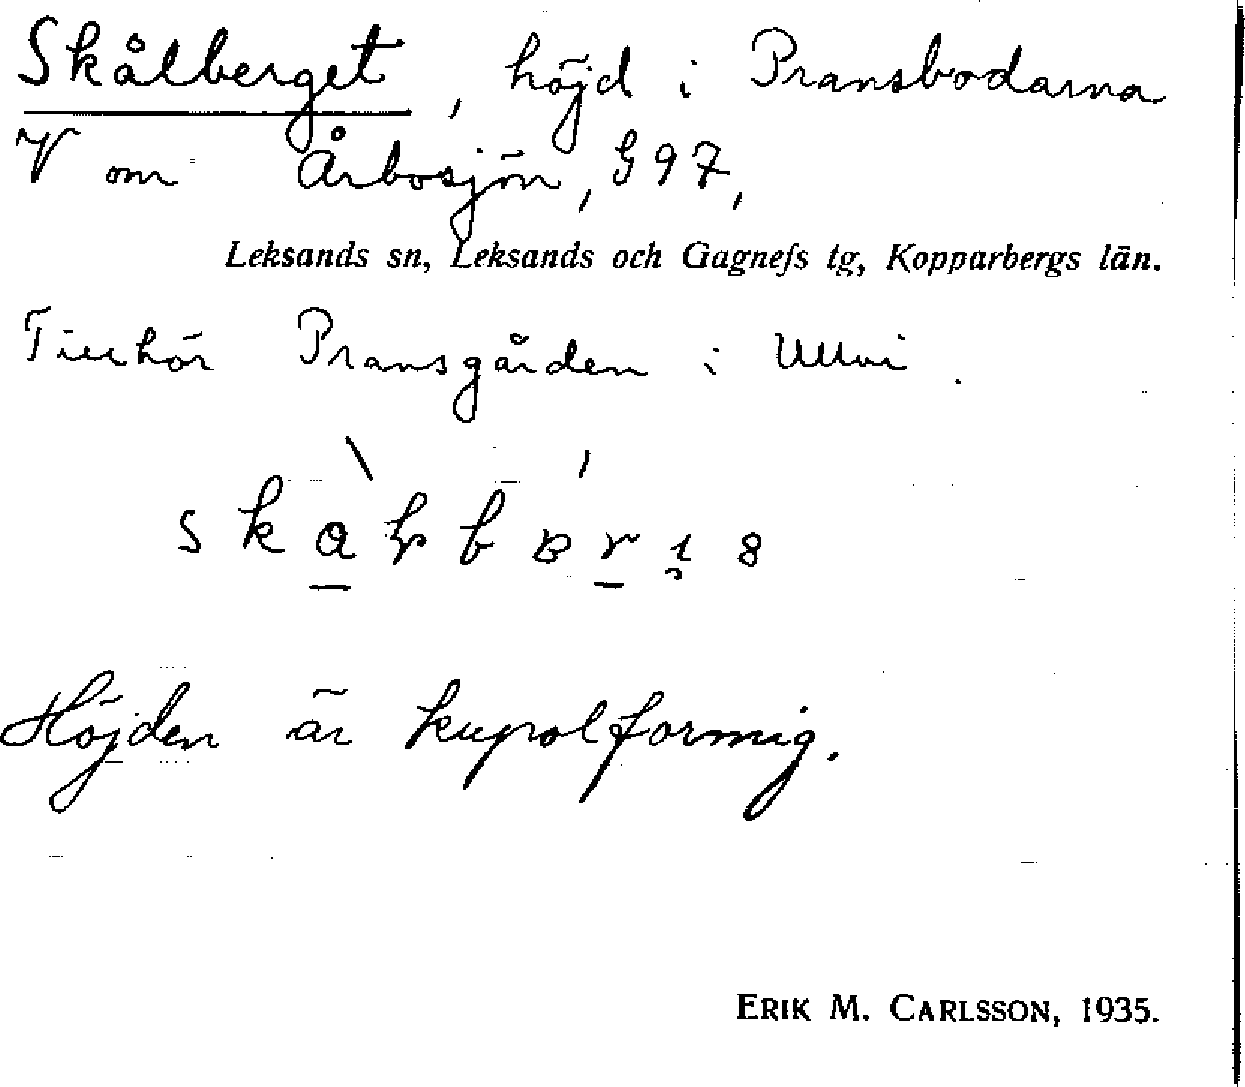 Skålberget, höjd i Pransbodarna
V om Årbosjön, G 97,
Leksands sn, Leksands och Gagnefs tg, Kopparbergs län.
Tillhör Pransgården i Ullvi.
Höjden är kupolformig.
ERIK M. CARLSSON, 1935.